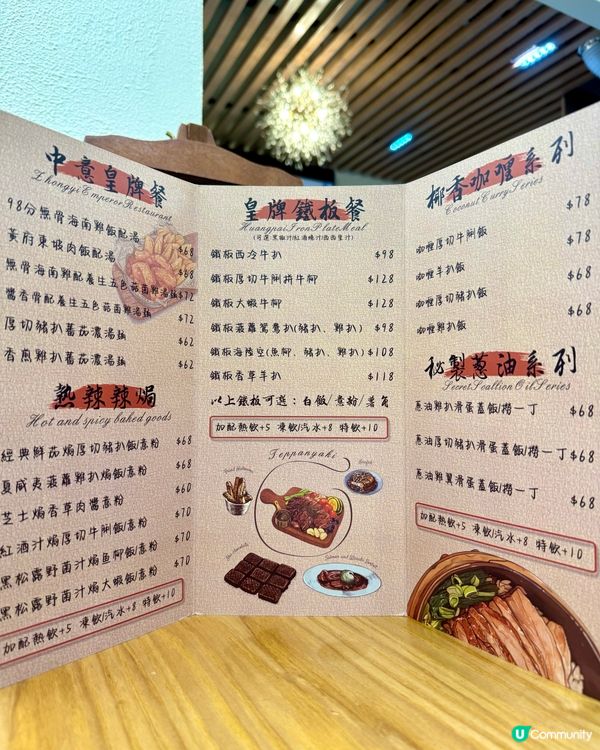 中意皇牌餐
Zhongyi Emperor Restaurant
98分無骨海南雞飯配湯
黃府東坡肉飯配湯 $68
無骨海南雞配養生五色菇菌雞湯鍋 $68
醬香骨配養生五色菇菌雞湯鍋 $72
厚切豬扒蕃茄濃湯鍋 $72
香風雞扒蕃茄濃湯鍋 $62
$62
熱辣辣焗
Hot and spicy baked goods
經典鮮茄焗厚切豬扒飯/意粉 $68
夏威夷菠蘿雞扒焗飯/意粉 $68
芝士焗香草肉醬意粉 $60
紅酒汁焗厚切牛脷飯/意粉 $70
黑松露野菌汁焗魚柳飯/意粉 $70
黑松露野菌汁焗大蝦飯/意粉 $70
加配熱飲+5 凍飲/汽水+8 特飲+10
皇牌鐵板餐
Huangpai Iron Plate Meal
(可選:黑椒汁/紅酒燒汁/西西里汁)
鐵板西冷牛扒 $98
鐵板厚切牛脷拼牛柳 $128
鐵板大蝦牛柳 $128
鐵板菠蘿鴛鴦扒(豬扒、雞扒) $98
鐵板海陸空(魚柳、豬扒、雞扒) $108
鐵板香草羊扒 $118
以上鐵板可選：白飯/意粉/薯角
加配熱飲+5 凍飲/汽水+8 特飲+10
Teppanyaki
椰香咖喱系列
Coconut Curry Series
$78
咖喱厚切牛脷飯 $78
咖喱羊扒飯 $68
咖喱豬扒飯 $68
咖喱雞扒飯
秘製蔥油系列
Secret Scallion Oil Series
蔥油雞扒滑蛋蓋飯/撈一丁 $68
蔥油厚切豬扒滑蛋蓋飯/撈一丁 $68
蔥油雞翼滑蛋蓋飯/撈一丁 $68
加配熱飲+5 凍飲/汽水+8 特飲+10
U Community